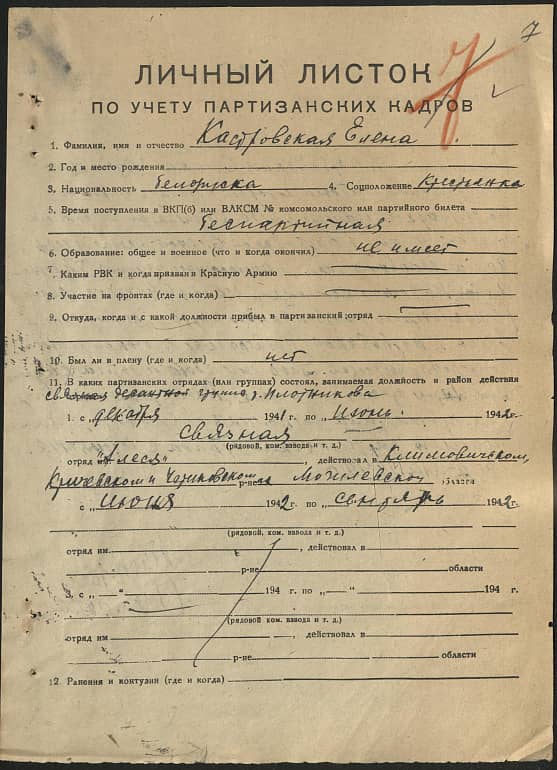 7
ЛИЧНЫЙ ЛИСТОК
ПО УЧЕТУ ПАРТИЗАНСКИХ КАДРОВ
1. Фамилия, имя и отчество Кастровская Елена
2. Год и место рождения
3. Национальность белоруска 4. Соцположение Крестьянка
5. Время поступления в ВКП(б) или ВЛКСМ № комсомольского или партийного билета
беспартийная
6. Образование: общее и военное (что и когда окончил) не имеет
7. Каким РВК и когда призван в Красную Армию
8. Участие на фронтах (где и когда)
9. Откуда, когда и с какой должности прибыл в партизанский отряд
10. Был ли в плену (где и когда) нет
11. В каких партизанских отрядах (или группах) состоял, занимаемая должность и район действия
связная десантной группы т. Плотникова
1. с „ декабря 1941 г. по „ Июнь 1942 г.
связная
(рядовой, ком. взвода и т. д.)
отряд „Алеся" , действовал в Климовичском,
Кричевском и Чериковском р-не Могилевской области
с „ июня 1942 г. по „ сентябрь 1942 г.
(рядовой, ком. взвода и т. д.)
отряд им. , действовал в
р-не области
3. с „—" 194 г. по „—" 194 г.
(рядовой, ком. взвода и т. д.)
отряд им. , действовал в
р-не области
12. Ранения и контузии (где и когда)